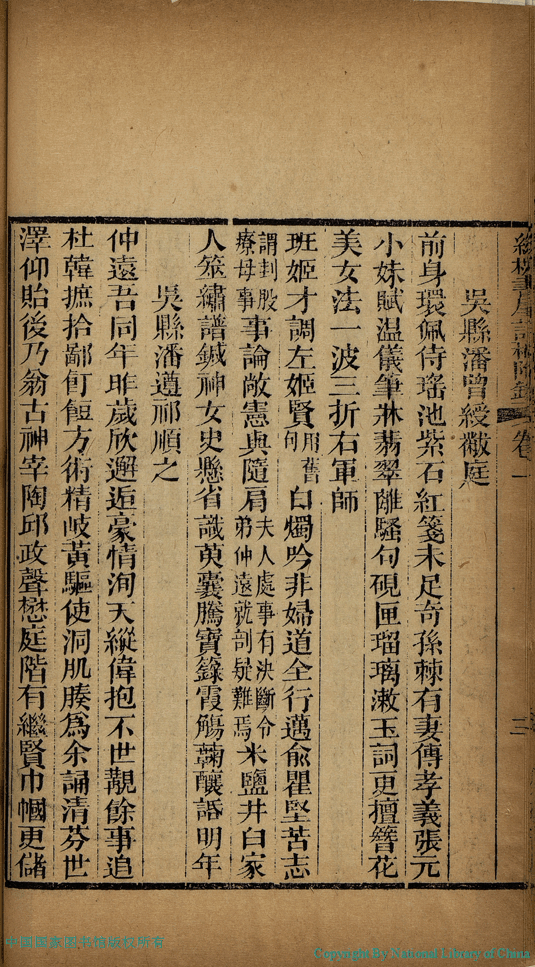 吳縣潘曾綬黻庭
前身環佩侍瑤池紫石紅箋未足奇孫棘有妻傳孝義張元
小妹賦温儀筆牀翡翠離騷句硯匣瑠璃漱玉詞更擅簪花
美女法一波三折右軍師
班姬才調左姬賢用舊句白燭吟非婦道全行邁兪瞿堅苦志
謂刲股療母事事論敞憲與隨肩夫人處事有決斷令弟仲遠就剖疑難焉米鹽井臼家
人筞繡譜鍼神女史懸省識萸囊騰寶籙霞觴蘜釀話明年
吳縣潘遵祁順之
仲遠吾同年昨歲欣邂逅豪情洵天縱偉抱不世覯餘事追
杜韓摭拾鄙飣餖方術精岐黃驅使洞肌腠爲余誦清芬世
澤仰貽後乃翁古神宰陶邱政聲懋庭階有繼賢巾幗更儲
卷一
三
中国国家图书馆版权所有
Copyright By National Library of China